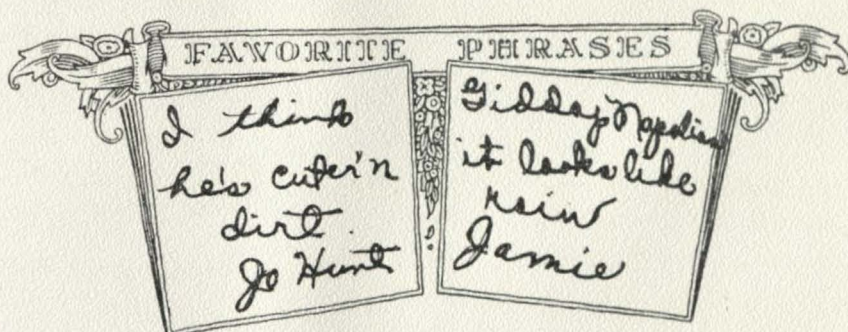 FAVORITE PHRASES
I think
he's cuter'n
dirt.
Jo Hunt
Giddap Napolian
it looks like
rain
Jamie